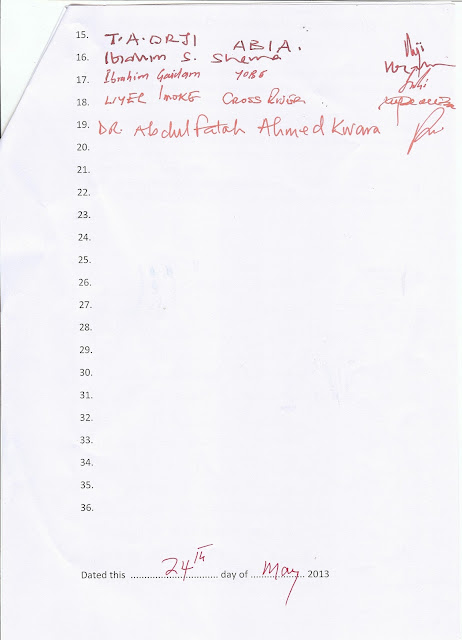 15. T.A. ORJI ABIA.
16. Ibrahim S. Shema
17. Ibrahim Gaidam YOBE
18. LIYEL IMOKE CROSS RIVER
19. DR. Abdulfatah Ahmed Kwara
20.
21.
22.
23.
24.
25.
26.
27.
28.
29.
30.
31.
32.
33.
34.
35.
36.
Dated this 24TH day of May 2013